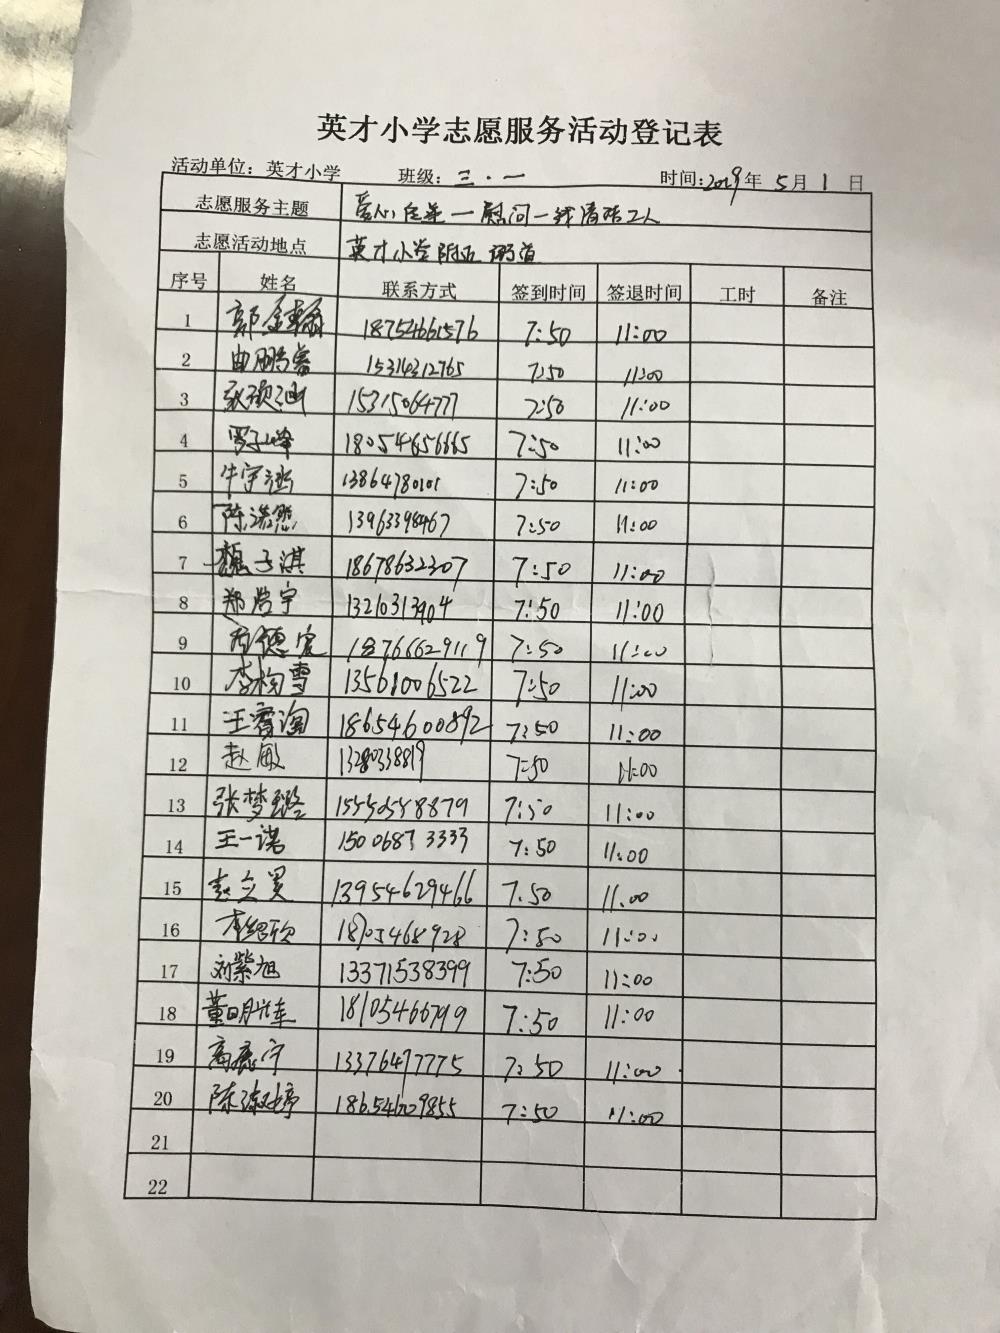 英才小学志愿服务活动登记表
活动单位：英才小学 班级：三·一 时间：2019年 5月 1日
志愿服务主题 爱心 一慰问一线清洁工人
志愿活动地点 英才小学附近
序号 姓名 联系方式 签到时间 签退时间 工时 备注
1 郭 18754661576 7:50 11:00
2 曲鹏睿 15314312765 7:50 11:00
3 15315064777 7:50 11:00
4 罗子峰 18054656665 7:50 11:00
5 牛宇涵 13864780101 7:50 11:00
6 陈浩然 13963398467 7:50 11:00
7 魏子淇 18678632307 7:50 11:00
8 郑浩宇 13210313904 7:50 11:00
9 德宏 18766629119 7:50 11:00
10 李梅雪 13561006522 7:50 11:00
11 王睿淘 18654600892 7:50 11:00
12 赵敏 7:50 11:00
13 张梦璐 15550558879 7:50 11:00
14 王一诺 15006873333 7:50 11:00
15 赵立昊 13954629466 7:50 11:00
16 7:50 11:00
17 刘紫旭 13371538399 7:50 11:00
18 董明 18105466799 7:50 11:00
19 高宁 13376477775 7:50 11:00
20 陈淑婷 18654609855 7:50 11:00
21
22